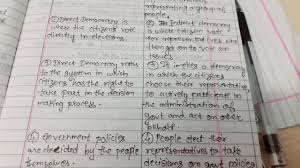 representing a group of
people.
② Direct Democracy is
where the citizens vote
directly in elections.
② In Indirect democracy
is which citizens vote
for representatives who
then go on to vote on
issues
③ Direct Democracy refers
to the system in which
citizens has the right to
take part in the decision
making process.
③ It implies a democracy
in which the citizens
choose their representative
to actively participate in
the administration of
govt and act on their
behalf.
④ Government policies
are decided by the people
themselves.
④ People elect their
representatives to take
decisions on govt policies